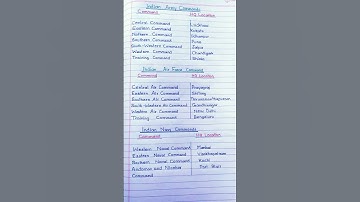 Indian Army Commands
Command HQ Location
Central Command Lucknow
Eastern Command Kolkata
Northern Command Udhampur
Southern Command Pune
South-Western Command Jaipur
Western Command Chandigarh
Training Command Shimla
Indian Air Force Command
Command HQ Location
Central Air Command Prayagraj
Eastern Air Command Shillong
Southern Air Command Thiruvananthapuram
South-Western Air Command Gandhinagar
Western Air Command New Delhi
Training Command Bengaluru
Indian Navy Commands
Command HQ Location
Western Naval Command Mumbai
Eastern Naval Command Visakhapatnam
Southern Naval Command Kochi
Andaman and Nicobar Port Blair
Command